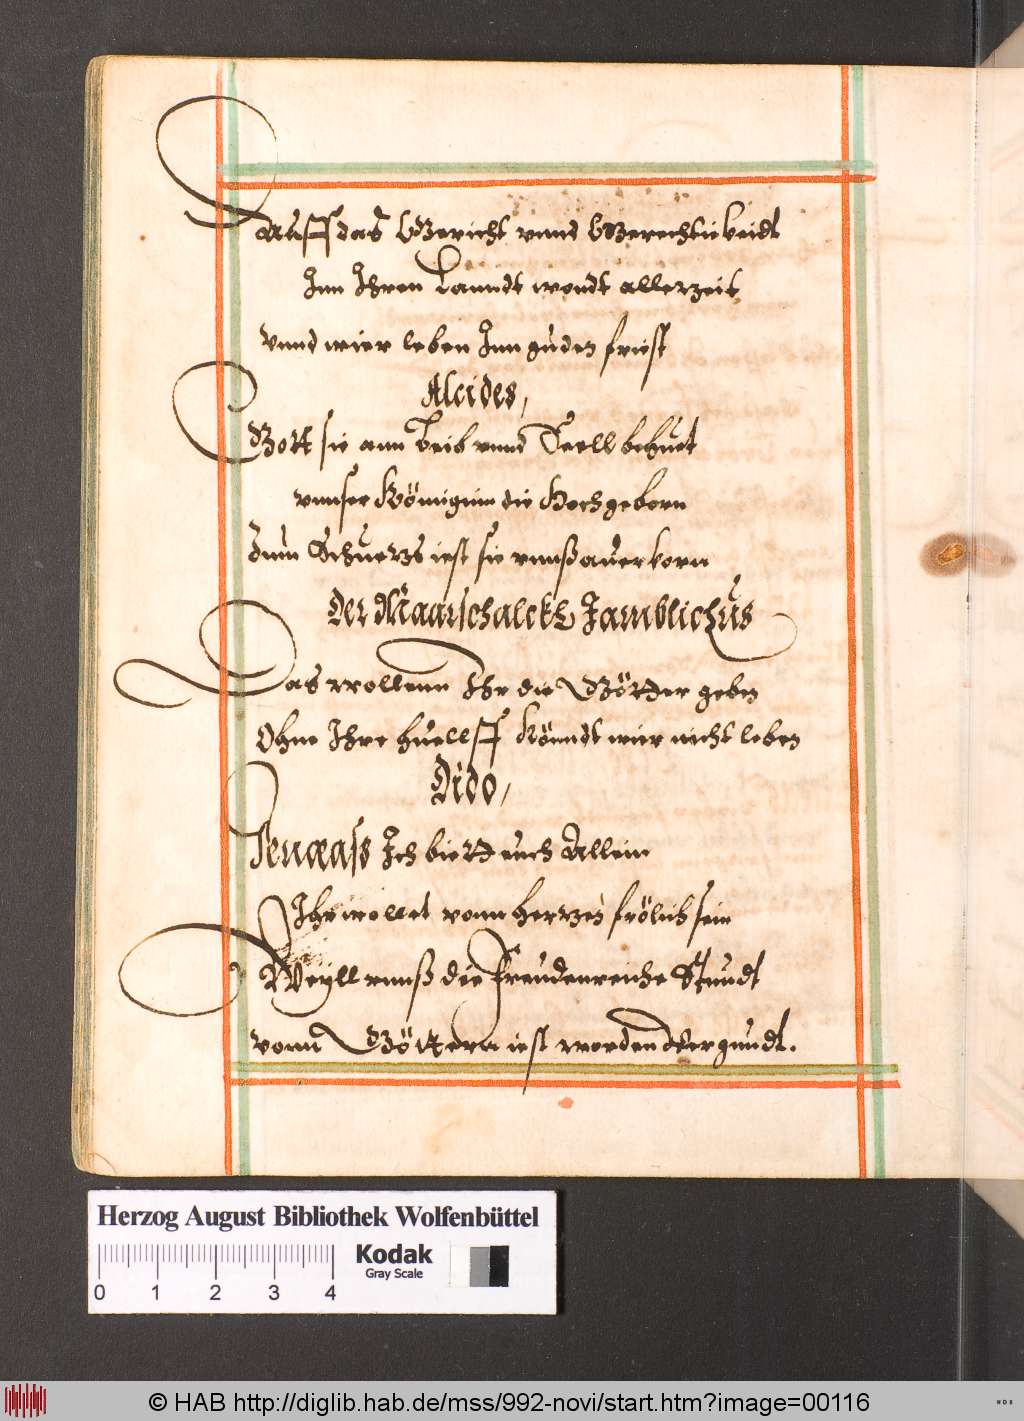 Auff das Gericht vnnd Gerechtickeidt
Inn Ihren Lanndt wondt allerzeit
Vnnd wier leben Inn guden friest
Alcides,
Gott sie ann Leib vnnd Seell behuet
vnnser Königinn die Hochgeborn
Zum Schuetzs iest sie vnnß auerkorn
Der Maarschalckh Jamblichus
Das wollenn Ihr die Götter geben
Ohne Ihre huellff könndt wier nicht leben
Dido,
Aeneass Ich biett euch Allein
Ihr wollet vonn Herzen frölich sein
Weyll vnnß die Freudenreiche Stundt
vonn Göttern iest worden vergundt.
Herzog August Bibliothek Wolfenbüttel
0 1 2 3 4
Kodak
Gray Scale
© HAB http://diglib.hab.de/mss/992-novi/start.htm?image=00116